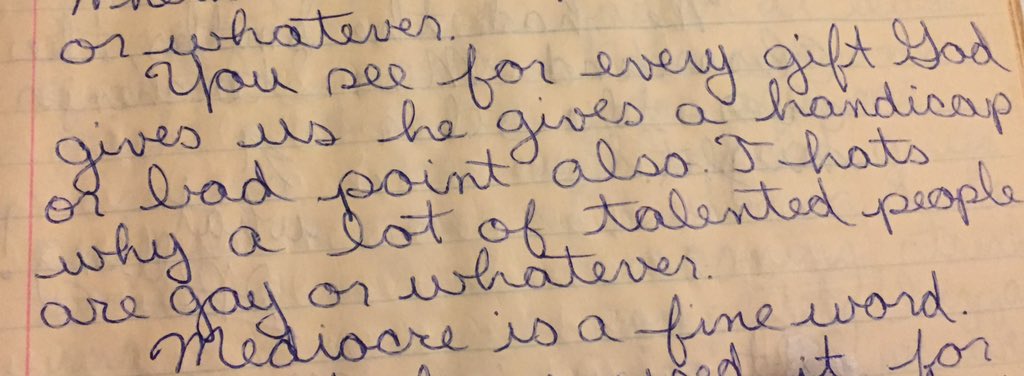 or whatever.
You see for every gift God
gives us he gives a handicap
or bad point also. Thats
why a lot of talented people
are gay or whatever.
Mediocre is a fine word.
it for